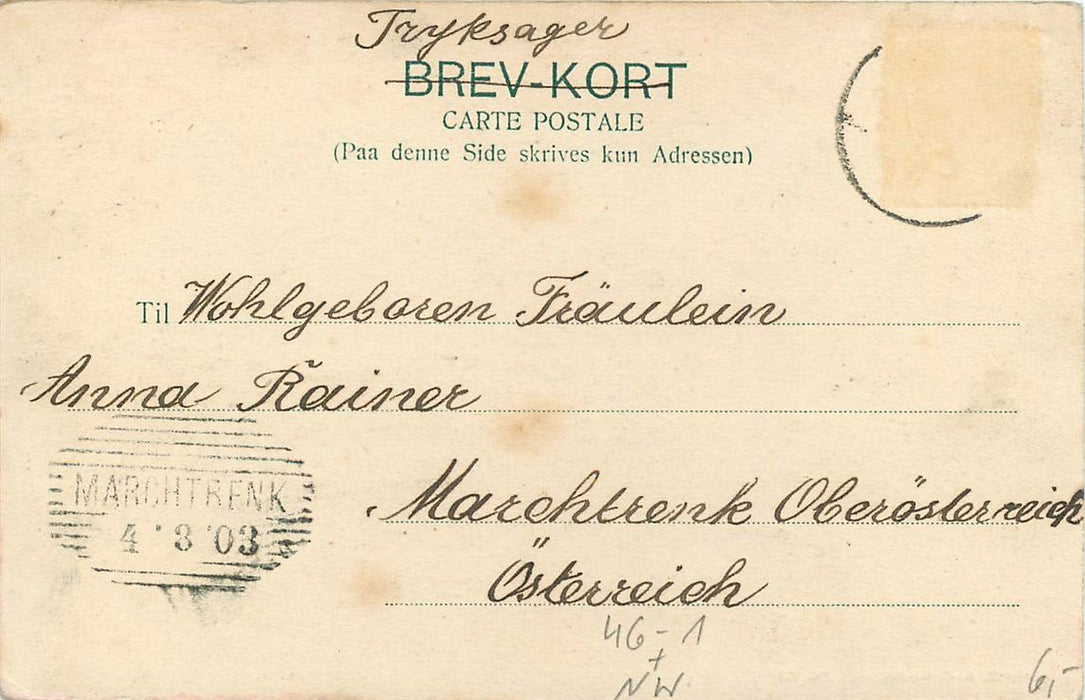 Tryksager
BREV-KORT
CARTE POSTALE
(Paa denne Side skrives kun Adressen)
Til Wohlgeboren Fräulein
Anna Rainer
MARCHTRENK
4 * 8 * 03
Marchtrenk Oberösterreich
Österreich
46-1
+
NW
6,-